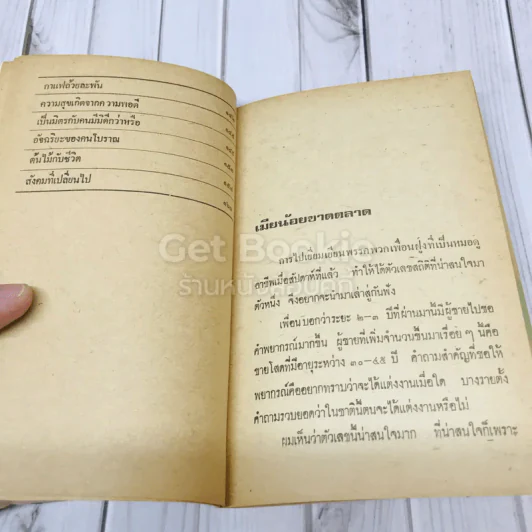 กาแฟถ้วยละพัน
ความสุขเกิดจากความพอดี
เป็นมิตรกับคนมีมีดีกว่าหรือ
อัจฉริยะของคนโบราณ
ต้นไม้กับชีวิต
สังคมที่เปลี่ยนไป
เมียน้อยขาดตลาด
การไปเยี่ยมเยียนพรรคพวกเพื่อนฝูงที่เป็นหมอดู
อาชีพเมื่อสัปดาห์ที่แล้ว ทำให้ได้ตัวเลขสถิติที่น่าสนใจมา
ตัวหนึ่ง จึงอยากจะนำมาเล่าสู่กันฟัง
เพื่อนบอกว่าระยะ ๒-๓ ปีที่ผ่านมานี้มีผู้ชายไปขอ
คำพยากรณ์มากขึ้น ผู้ชายที่เพิ่มจำนวนขึ้นมาเรื่อย ๆ นี้คือ
ชายโสดที่มีอายุระหว่าง ๓๐-๔๕ ปี คำถามสำคัญที่ขอให้
พยากรณ์คืออยากทราบว่าจะได้แต่งงานเมื่อใด บางรายตั้ง
คำถามรวบยอดว่าในชาตินี้ตนจะได้แต่งงานหรือไม่
ผมเห็นว่าตัวเลขนี้น่าสนใจมาก ที่น่าสนใจก็เพราะ
Get Bookie